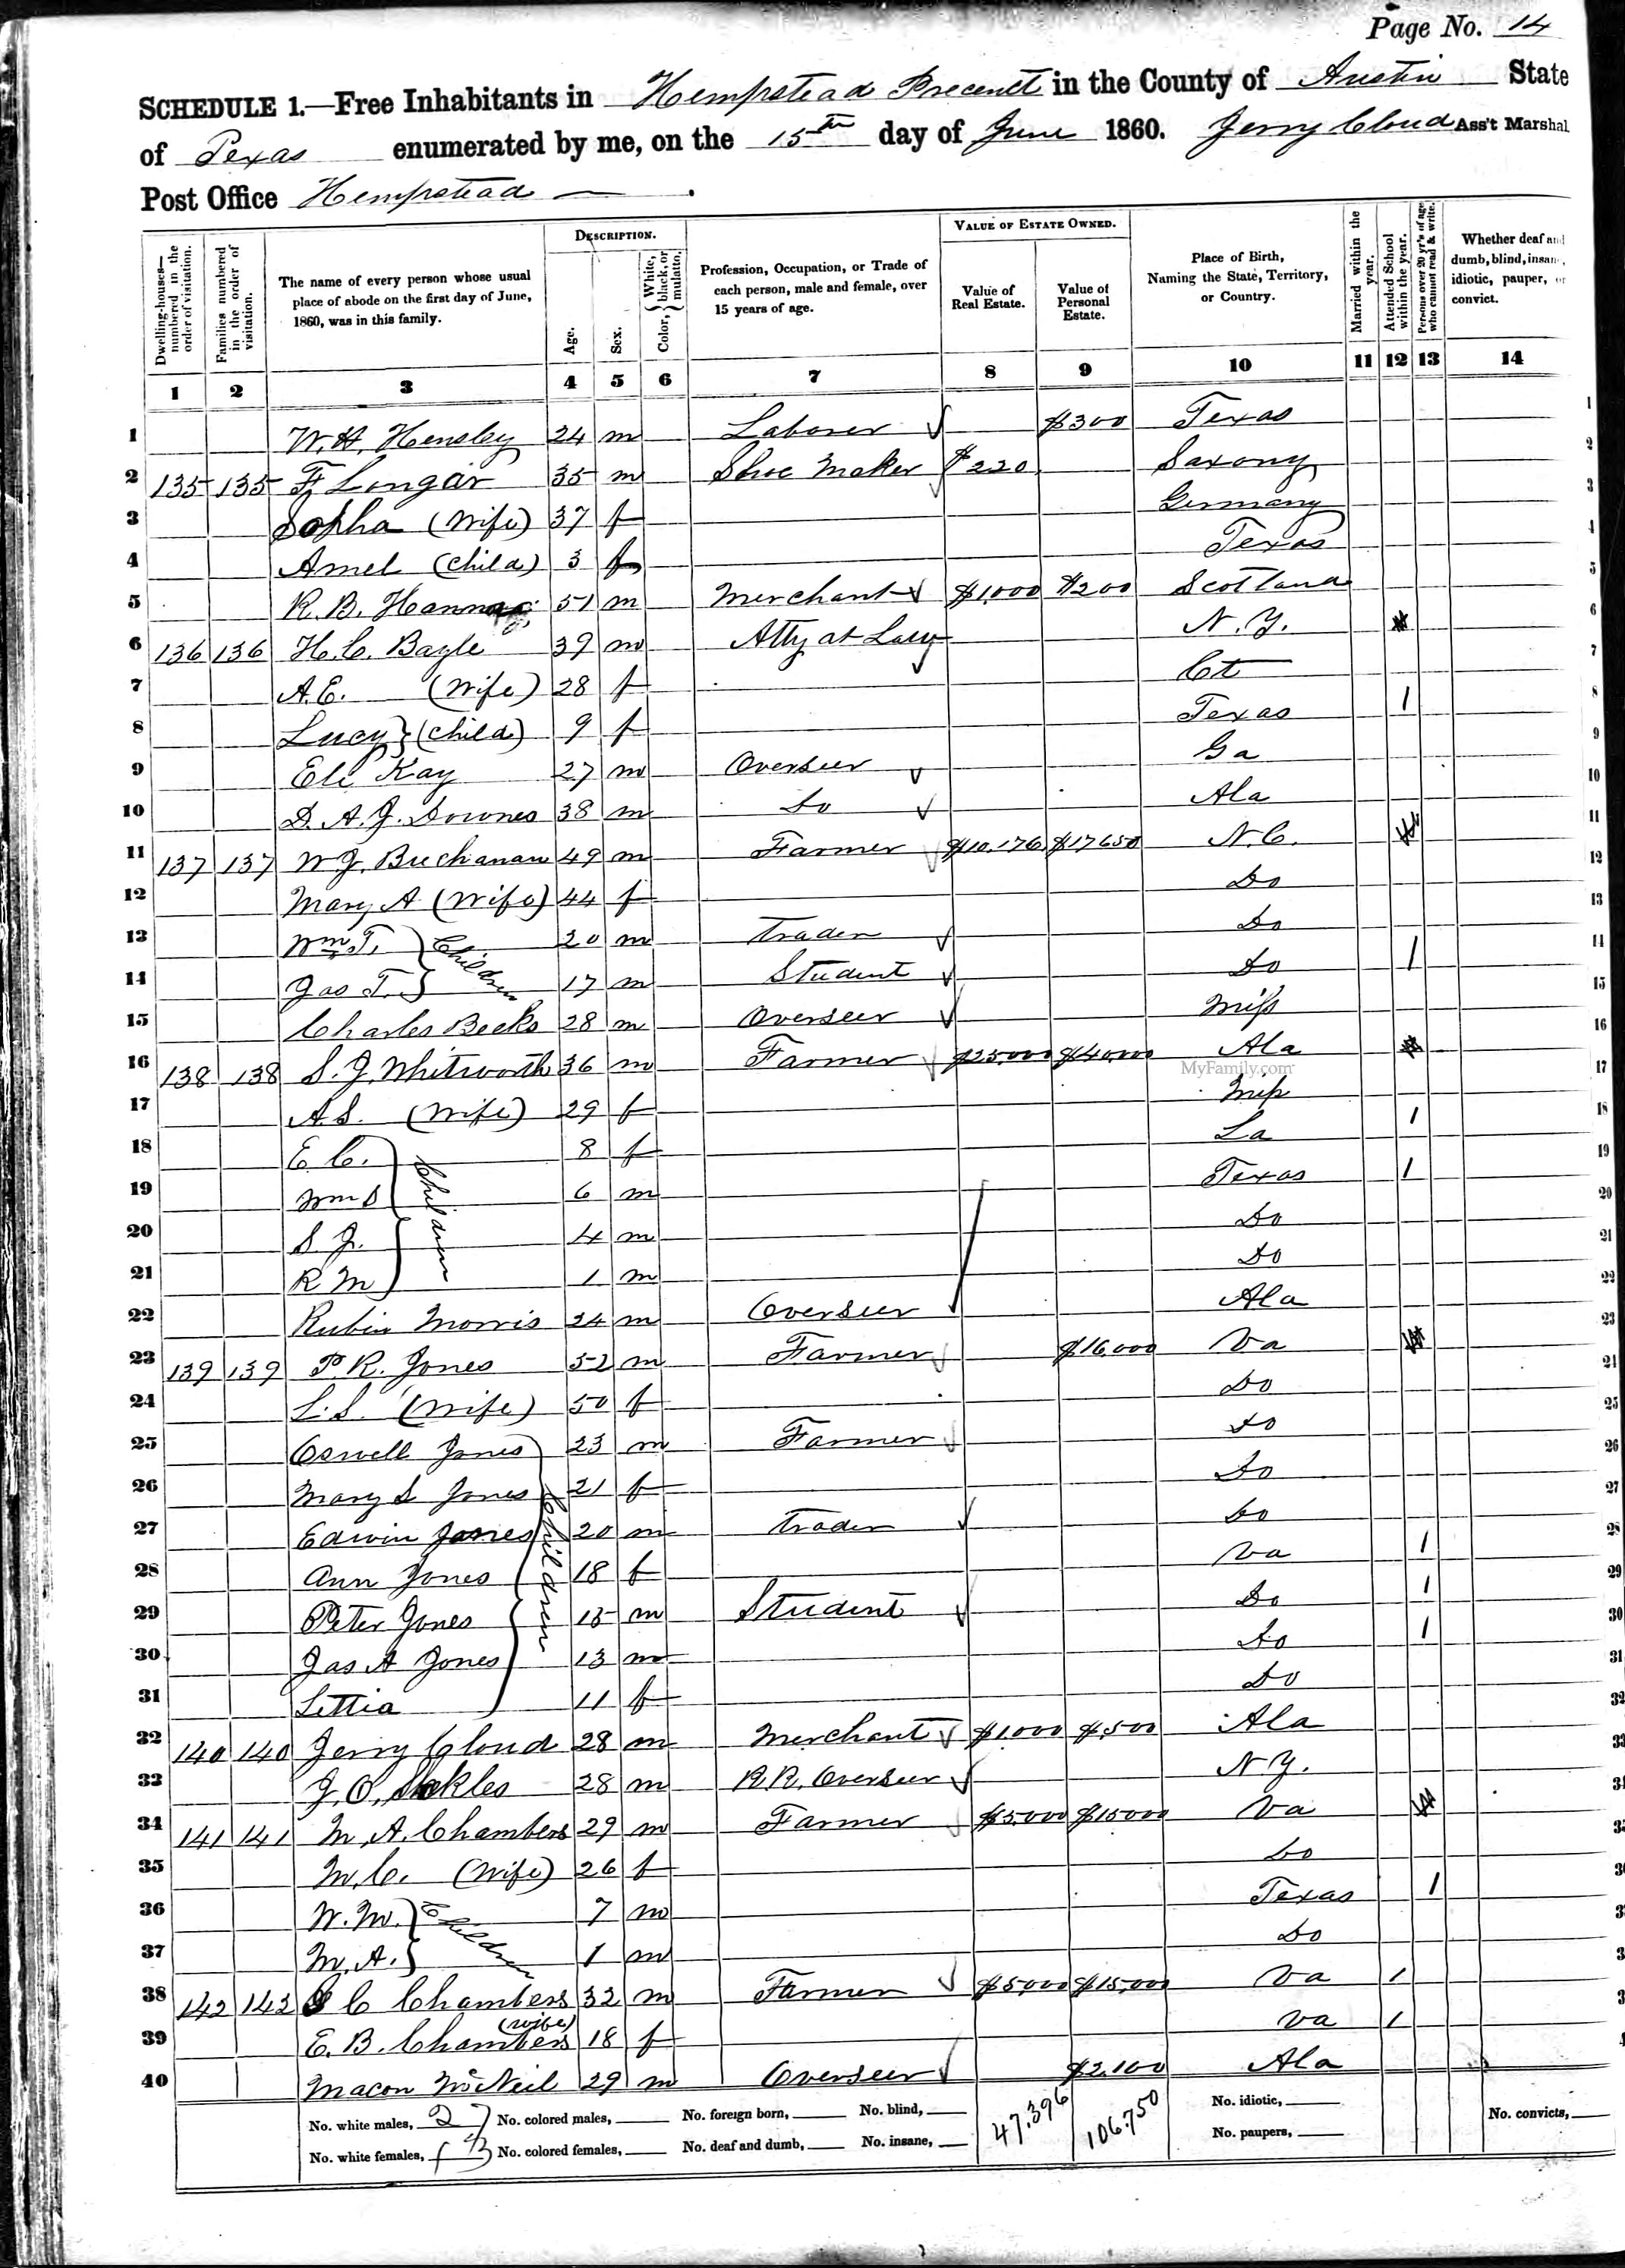 Page No. 14
SCHEDULE 1.—Free Inhabitants in Hempstead Precenct in the County of Austin State
of Texas enumerated by me, on the 15th day of June 1860. Jerry Cloud Ass't Marshal
Post Office Hempstead .
Dwelling-houses—numbered in the order of visitation.
Families numbered in the order of visitation.
The name of every person whose usual place of abode on the first day of June, 1860, was in this family.
DESCRIPTION.
Age.
Sex.
Color, { White, black, or mulatto.
Profession, Occupation, or Trade of each person, male and female, over 15 years of age.
VALUE OF ESTATE OWNED.
Value of Real Estate.
Value of Personal Estate.
Place of Birth, Naming the State, Territory, or Country.
Married within the year.
Attended School within the year.
Persons over 20 y'rs of age who cannot read & write.
Whether deaf and dumb, blind, insane, idiotic, pauper, or convict.
1 2 3 4 5 6 7 8 9 10 11 12 13 14
1 W. H. Hensley 24 m Laborer $300 Texas 1
2 135 135 F Lingar 35 m Shoe Maker $220 Saxony 2
3 Sopha (Wife) 37 f Germany 3
4 Amel (Child) 3 f Texas 4
5 R. B. 51 m Merchant $1,000 $200 Scotland 5
6 136 136 H. C. Bagle 39 m Atty at Law N. Y. 6
7 A. E. (Wife) 28 f Ct 7
8 Lucy } (Child) 9 f Texas 1 8
9 Eli Kay 27 m Overseer Ga 9
10 D. A. J. Downes 38 m Do Ala 10
11 137 137 W J. Buchanan 49 m Farmer $10.176 $17650 N. C. 11
12 Mary A (Wife) 44 f Do 12
13 Wm T. } Children 20 m Trader Do 13
14 Jas T. } 17 m Student Do 1 14
15 Charles Beeks 28 m Overseer Miss 15
16 138 138 S. J. Whitworth 36 m Farmer $25,000 $40,000 Ala 16
MyFamily.com
17 A. S. (Wife) 29 f Miss 17
18 E. C. } Children 8 f La 1 18
19 Wm S 6 m Texas 1 19
20 S J. 4 m Do 20
21 R M 1 m Do 21
22 Rubin Morris 24 m Overseer Ala 22
23 139 139 P. R. Jones 52 m Farmer $16,000 Va 23
24 L. S. (Wife) 50 f Do 24
25 Oswell Jones } Children 23 m Farmer Do 25
26 Mary S Jones 21 f Do 26
27 Edwin Jones 20 m Trader Do 27
28 Ann Jones 18 f Va 1 28
29 Peter Jones 15 m Student Do 1 29
30 Jas A Jones 13 m Do 1 30
31 Lettia 11 f Do 31
32 140 140 Jerry Cloud 28 m Merchant $1,000 $,500 Ala 32
33 J. O. Sickles 28 m R. R. Overseer N Y. 33
34 141 141 M. A. Chambers 29 m Farmer $5,000 $15000 Va
35 M. C. (Wife) 26 f Do
36 W. M. } Children 7 m Texas 1
37 M. A. } 1 m Do
38 142 142 C Chambers 32 m Farmer $5,000 $15,000 Va 1
39 E. B. Chambers (wife) 18 f Va 1
40 Macon McNeil 29 m Overseer $2.100 Ala
No. white males, 27 No. colored males, No. foreign born, No. blind, 47.396 106.750 No. idiotic,
No. white females, 13 No. colored females, No. deaf and dumb, No. insane, No. paupers, No. convicts,